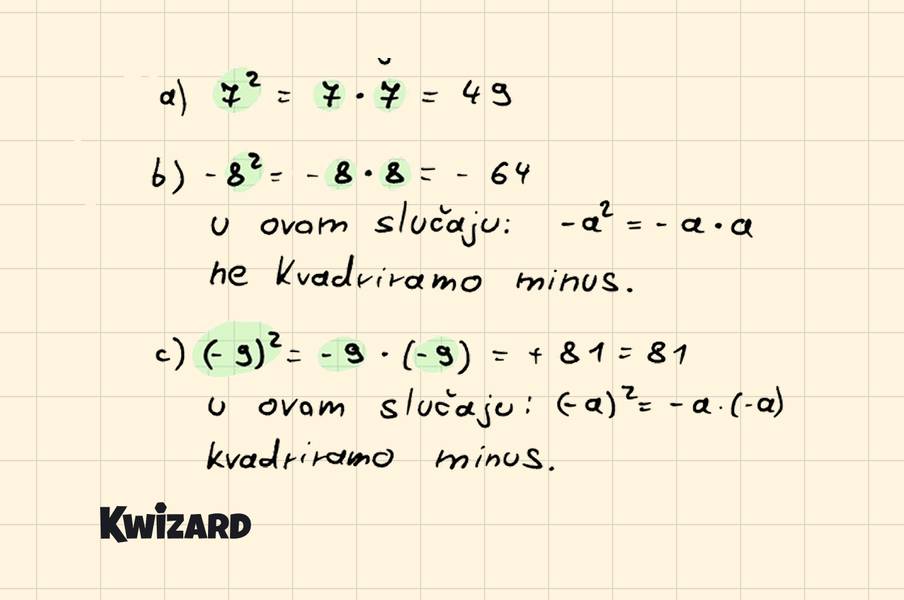 a) 7² = 7 · 7 = 49
b) -8² = - 8 · 8 = - 64
u ovom slučaju: -a² = - a · a
ne kvadriramo minus.
c) (-9)² = -9 · (-9) = + 81 = 81
u ovom slučaju: (-a)² = -a · (-a)
kvadriramo minus.
KWIZARD